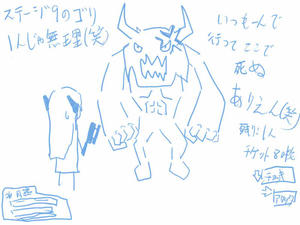 ステージ9のゴリ
1人じゃ無理(笑)
いつも一人で
行ってここで
死ぬ
ありえん(笑)
残り1人
チケット80枚